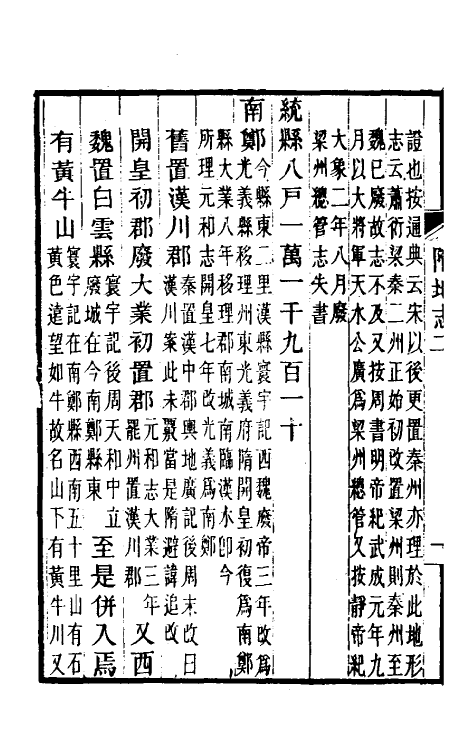 證也按通典云宋以後更置秦州亦理於此地形
志云蕭衍梁秦二州正始初改置梁州則秦州至
魏已廢故志不及又按周書明帝紀武成元年九
月以大將軍天水公廣爲梁州總管又按靜帝紀
大象二年八月廢
梁州總管志失書
統縣八戸一萬一千九百一十
南鄭今縣東二里漢縣寰宇記西魏廢帝三年改爲
光義縣移理州東光義府隋開皇初復爲南鄭
縣大業八年移理郡南城南臨漢水卽今
所理元和志開皇七年改光義爲南鄭
舊置漢川郡秦置漢中郡輿地廣記後周末改曰
漢川案此未覈當是隋避諱追改
開皇初郡廢大業初置郡元和志大業三年
罷州置漢川郡又西
魏置白雲縣寰宇記後周天和中立
廢城在今南鄭縣東至是併入焉
有黃牛山寰宇記在南鄭縣西南五十里山有石
黃色遠望如牛故名山下有黃牛川又
隋地志二
一